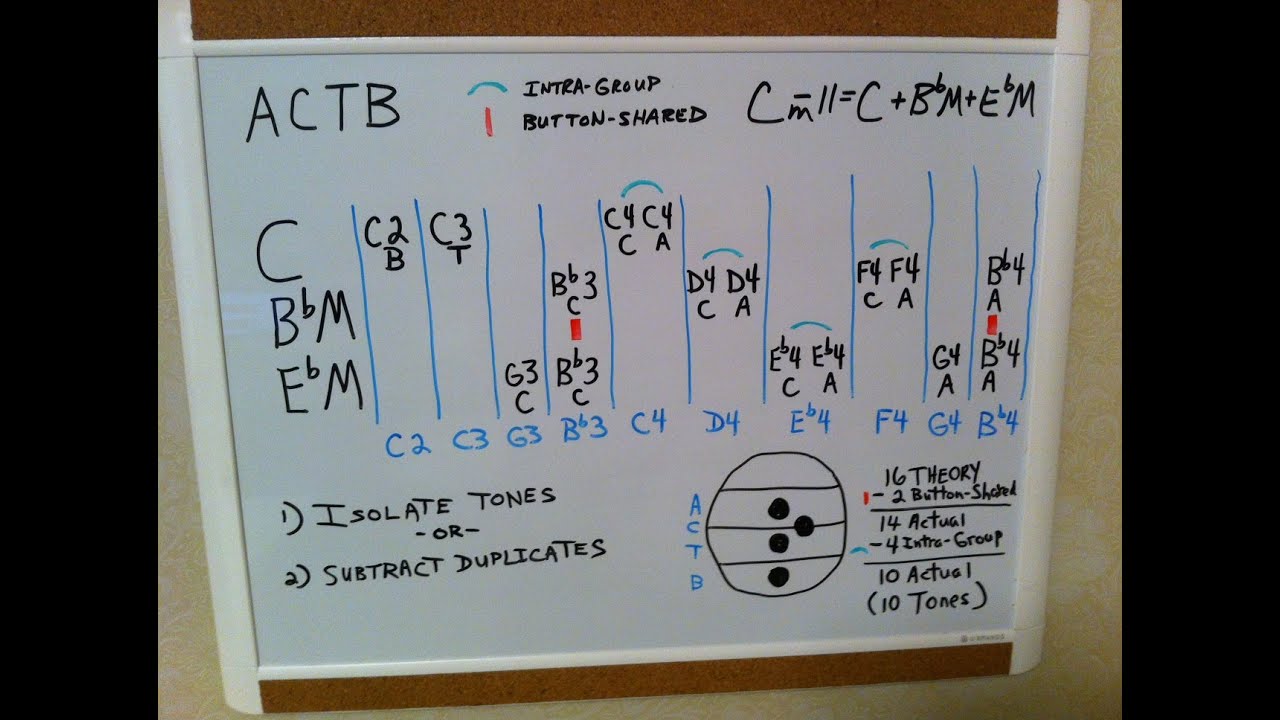 ACTB
INTRA-GROUP
BUTTON-SHARED
Cm-11=C+B♭M+E♭M
C C2 C3 C4 C4
B T C A
B♭M B♭3 D4 D4 F4 F4 B♭4
C C A C A A
E♭M G3 B♭3 E♭4 E♭4 G4 B♭4
C C C A A A
C2 C3 G3 B♭3 C4 D4 E♭4 F4 G4 B♭4
1) ISOLATE TONES
-OR-
2) SUBTRACT DUPLICATES
A
C
T
B
16 THEORY
- 2 Button-Shared
14 Actual
- 4 Intra-Group
10 Actual
(10 Tones)